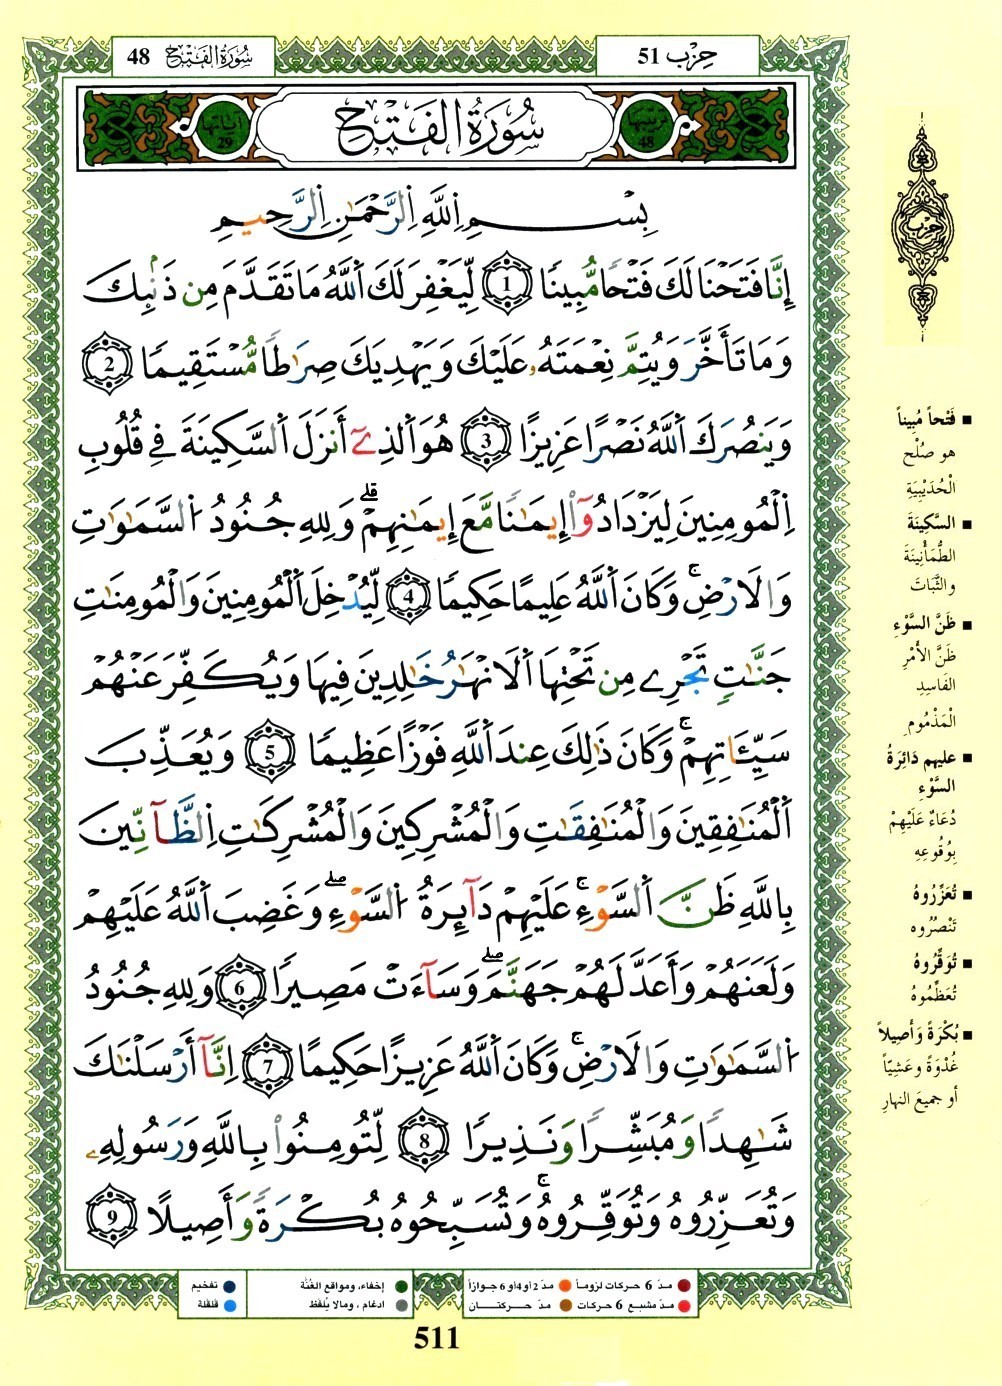 سُورَةُ الفَتْحِ 48
حِزْب 51
ترتيبها 48
سُورَةُ الفَتْحِ
آياتها 29
بِسْمِ اِ۬للَّهِ اِ۬لرَّحْمَٰنِ اِ۬لرَّحِيمِ
إِنَّا فَتَحْنَا لَكَ فَتْحاٗ مُّبِيناٗ 1 لِّيَغْفِرَ لَكَ اَ۬للَّهُ مَا تَقَدَّمَ مِن ذَنۢبِكَ
وَمَا تَأَخَّرَ وَيُتِمَّ نِعْمَتَهُۥ عَلَيْكَ وَيَهْدِيَكَ صِرَٰطاٗ مُّسْتَقِيماٗ 2
وَيَنصُرَكَ اَ۬للَّهُ نَصْراً عَزِيزاً 3 هُوَ اَ۬لذِےٓ أَنزَلَ اَ۬لسَّكِينَةَ فِے قُلُوبِ
اِ۬لْمُومِنِينَ لِيَزْدَادُوٓاْ إِيمَٰناٗ مَّعَ إِيمَٰنِهِمْۖ وَلِلهِ جُنُودُ اُ۬لسَّمَٰوَٰتِ
وَالَارْضِۚ وَكَانَ اَ۬للَّهُ عَلِيماً حَكِيماٗ 4 لِّيُدْخِلَ اَ۬لْمُومِنِينَ وَالْمُومِنَٰتِ
جَنَّٰتٖ تَجْرِے مِن تَحْتِهَا اَ۬لَانْهَٰرُ خَٰلِدِينَ فِيهَا وَيُكَفِّرَ عَنْهُمْ
سَيِّـَٔاتِهِمْۚ وَكَانَ ذَٰلِكَ عِندَ اَ۬للَّهِ فَوْزاً عَظِيماٗ 5 وَيُعَذِّبَ
اَ۬لْمُنَٰفِقِينَ وَالْمُنَٰفِقَٰتِ وَالْمُشْرِكِينَ وَالْمُشْرِكَٰتِ اِ۬لظَّآنِّينَ
بِاللَّهِ ظَنَّ اَ۬لسَّوْءِۚ عَلَيْهِمْ دَآئِرَةُ اُ۬لسَّوْءِۖ وَغَضِبَ اَ۬للَّهُ عَلَيْهِمْ
وَلَعَنَهُمْ وَأَعَدَّ لَهُمْ جَهَنَّمَۖ وَسَآءَتْ مَصِيراٗ 6 وَلِلهِ جُنُودُ
اُ۬لسَّمَٰوَٰتِ وَالَارْضِۚ وَكَانَ اَ۬للَّهُ عَزِيزاً حَكِيماً 7 اِنَّآ أَرْسَلْنَٰكَ
شَٰهِداٗ وَمُبَشِّراٗ وَنَذِيراٗ 8 لِّتُومِنُواْ بِاللَّهِ وَرَسُولِهِۦ
وَتُعَزِّرُوهُ وَتُوَقِّرُوهُۚ وَتُسَبِّحُوهُ بُكْرَةٗ وَأَصِيلاً 9
حِزْب
فَتْحاً مُبِيناً
هو صُلْح
الْحُدَيْبِيَةِ
السَّكِينَةَ
الطُّمَأْنِينَةَ
والثَّبَاتَ
ظَنَّ السَّوْءِ
ظَنَّ الأَمْرِ
الفَاسِدِ
الْمَذْمُومِ
عليهم دَائِرَةُ
السَّوْءِ
دُعَاءٌ عَلَيْهِمْ
بِوُقُوعِهِ
تُعَزِّرُوهُ
تَنْصُرُوه
تُوَقِّرُوهُ
تُعَظِّمُوهُ
بُكْرَةً وَأَصِيلاً
غُدْوَةً وعَشِيّاً
أو جميعَ النهارِ
مدّ 6 حركات لزوماً
مدّ 2 أو 4 أو 6 جوازاً
إخفاء، ومواقع الغُنَّة
تفخيم
مدّ مشبع 6 حركات
مدّ حركتان
ادغام، ومالا يُلفظ
قلقلة
511